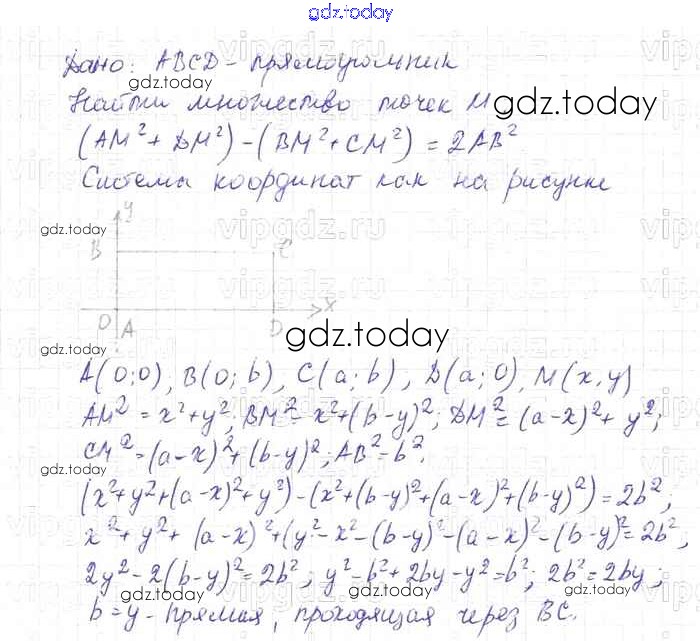 gdz.today
Дано: ABCD - прямоугольник
gdz.today
Найти множество точек M
gdz.today
(AM² + DM²) - (BM² + CM²) = 2AB²
Система координат как на рисунке
y
gdz.today
B C
O A D x
gdz.today
A(0;0), B(0; b), C(a; b), D(a; 0), M(x, y)
AM² = x² + y²; BM² = x² + (b-y)²; DM² = (a-x)² + y²;
gdz.today
CM² = (a-x)² + (b-y)²; AB² = b².
gdz.today
(x²+y²+(a-x)²+y²) - (x²+(b-y)²+(a-x)²+(b-y)²) = 2b²;
x² + y² + (a-x)² + (y² - x² - (b-y)² - (a-x)² - (b-y)² = 2b²;
gdz.today
2y² - 2(b-y)² = 2b²; y² - b² + 2by - y² = b²; 2b² = 2by;
b = y - прямая, проходящая через BC.
gdz.today
vipgdz.ru